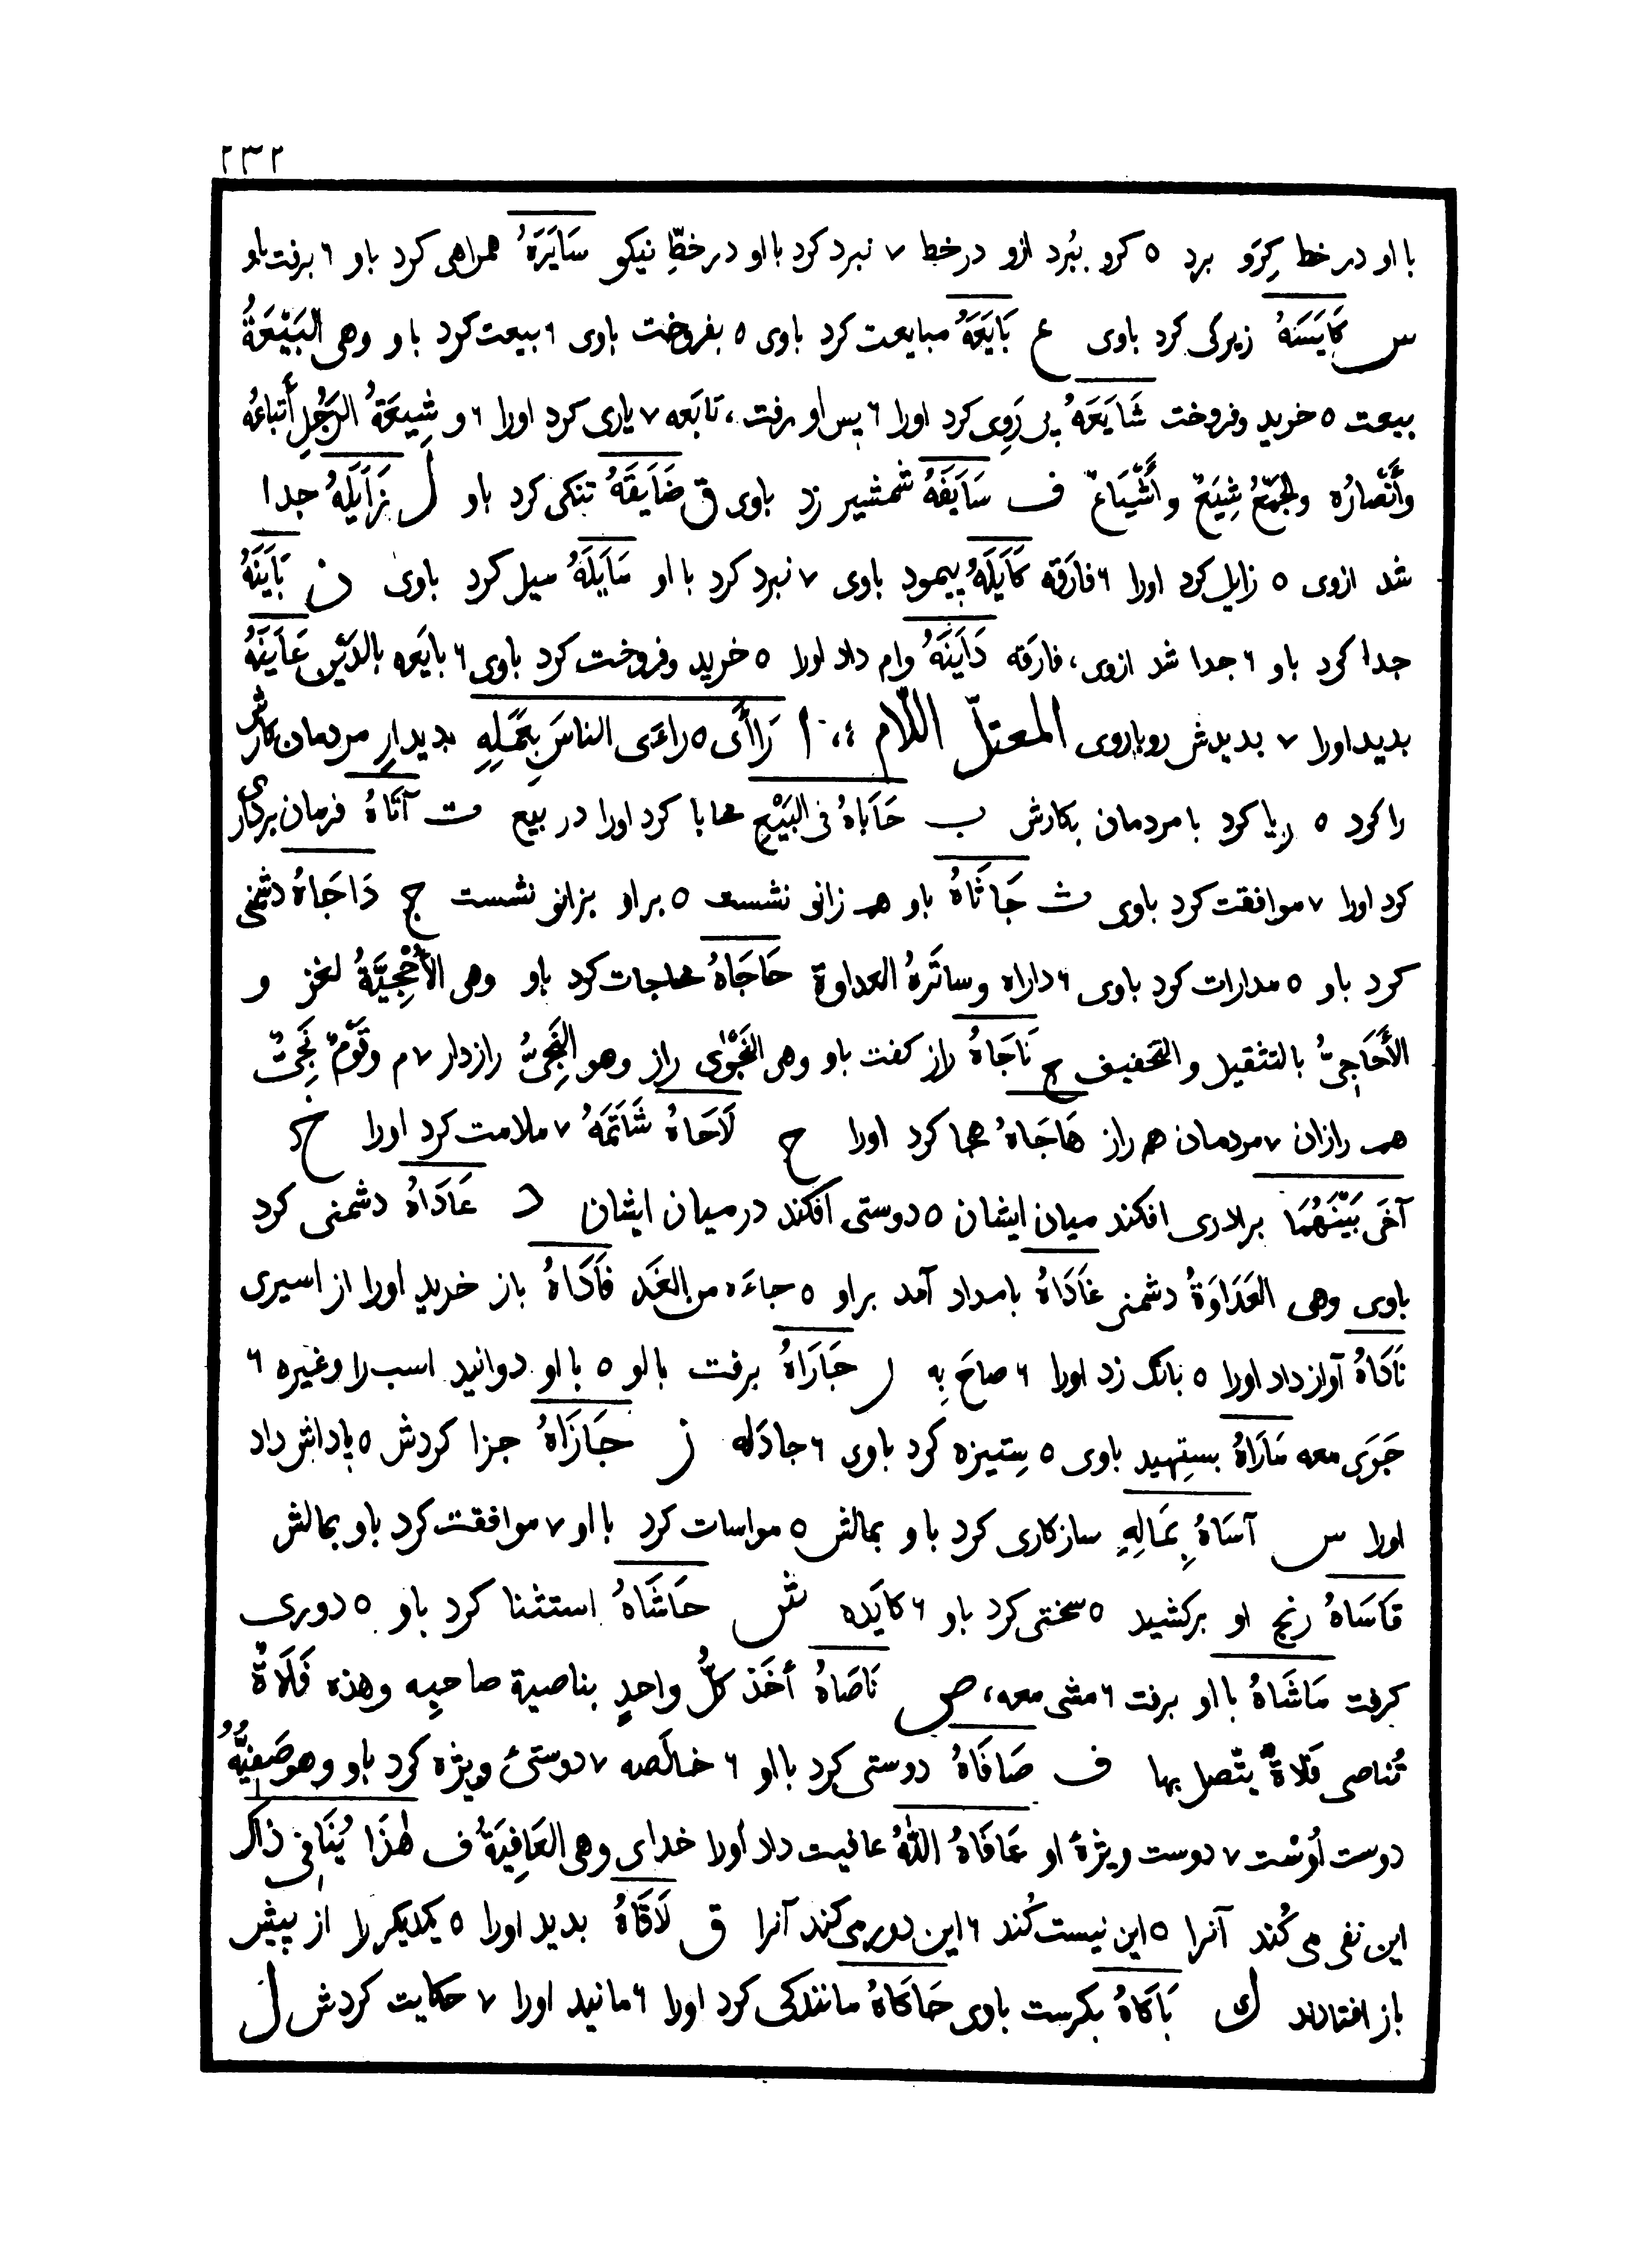 ٢٣٢
با او در خط گِرَو برد ٥ گرو ببُرد ازو در خط ٧ نبرد کرد با او در خطّ نیکو سَایَرَهُ همراهی کرد باو ٦ برفت باو
س کَایَسَهُ زیرکی کرد باوی ع بَایَعَهُ مبایعت کرد باوی ٥ بفروخت باوی ٦ بیعت کرد باو وهی البَیْعَةُ
بیعت ٥ خرید وفروخت شَایَعَهُ پی رَوِی کرد اورا ٦ پس او برفت، تابَعه ٧ یاری کرد اورا ٦ و شِیعَةُ الرَّجُلِ أتباعُه
وأَنْصارُه والجَمْعُ شِیَعٌ وأَشْیَاعٌ ف سَایَفَهُ شمشیر زد باوی ق ضَایَقَهُ تنکی کرد باو ل زَایَلَهُ جدا
شد ازوی ٥ زایل کرد اورا ٦ فارَقه کَایَلَهُ پیمود باوی ٧ نبرد کرد با او مَایَلَهُ میل کرد باوی ن بَایَنَهُ
جدا کرد باو ٦ جدا شد ازوی، فارَقه دَایَنَهُ وام داد اورا ٥ خرید وفروخت کرد باوی ٦ بایَعه بالدَیْن عَایَنَهُ
بدید اورا ٧ بدیدش روباروی المعتلّ اللّام ء، أ رَاأَی ٥ راءَی الناسَ بِعَمَلِهِ بدیدارِ مردمان کارش
را کرد ٥ ریا کرد با مردمان بکارش ب حَابَاهُ فی البَیْعِ محابا کرد اورا در بیع ت آتَاهُ فرمان برداری
کرد اورا ٧ موافقت کرد باوی ث جَاثَاهُ باو هم زانو نشست ٥ براو بزانو نشست ج دَاجَاهُ دشمنی
کرد باو ٥ مدارات کرد باوی ٦ داراه وساتَرهُ العداوة حَاجَاهُ محاجات کرد باو وهی الأُحْجِیَّةُ لغز و
الأَحَاجِیُّ بالتثقیل والتخفیف ج نَاجَاهُ راز کفت باو وهی النَجْوٰی راز وهو النَجِیُّ رازدار ٧ م وقَوْمٌ نَجِیٌّ
هم رازان ٧ مردمان هم راز هَاجَاهُ هجا کرد اورا ح لَاحَاهُ شَاتَمَهُ ٧ ملامت کرد اورا خ
آخَی بَیْنَهُمَا برادری افکند میان ایشان ٥ دوستی افکند درمیان ایشان د عَادَاهُ دشمنی کرد
باوی وهی العَدَاوَةُ دشمنی غَادَاهُ بامداد آمد براو ٥ جاءَه من الغَد فَادَاهُ باز خرید اورا از اسیری
نَادَاهُ آواز داد اورا ٥ بانک زد اورا ٦ صاحَ بِه ر جَارَاهُ برفت با او ٥ با او دوانید اسب را وغیره ٦
جَرَی معه مَارَاهُ بستهید باوی ٥ سِتیزه کرد باوی ٦ جادَله ز جَازَاهُ جزا کردش ٥ پاداش داد
اورا س آسَاهُ بِمَالِهِ سازکاری کرد باو بمالش ٥ مواسات کرد با او ٧ موافقت کرد باو بمالش
قَاسَاهُ رنج او برکشید ٥ سختی کرد باو ٦ کایَده ش حَاشَاهُ استثنا کرد باو ٥ دوری
کرفت مَاشَاهُ با او برفت ٦ مشی معه، ص نَاصَاهُ أخَذ کلُّ واحدٍ بناصیة صاحبِه وهذه فَلَاةٌ
تُناصی فَلاةً یتّصل بها ف صَافَاهُ دوستی کرد با او ٦ خالَصه ٧ دوستیٔ ویژه کرد باو وهو صَفِیُّهُ
دوست اُوسْت ٧ دوست ویژهٔ او عَافَاهُ اللّٰهُ عافیت داد اورا خدای وهی العَافِیَةُ ف هٰذَا یُنَافِی ذاکَ
این نفی می کُند آنرا ٥ این نیست کُند ٦ این دور می کند آنرا ق لَاقَاهُ بدید اورا ٥ یکدیکر را از پیش
باز افتادند ك بَاکَاهُ بکرست باوی حَاکَاهُ مانندکی کرد اورا ٦ مانید اورا ٧ حکایت کردش ل